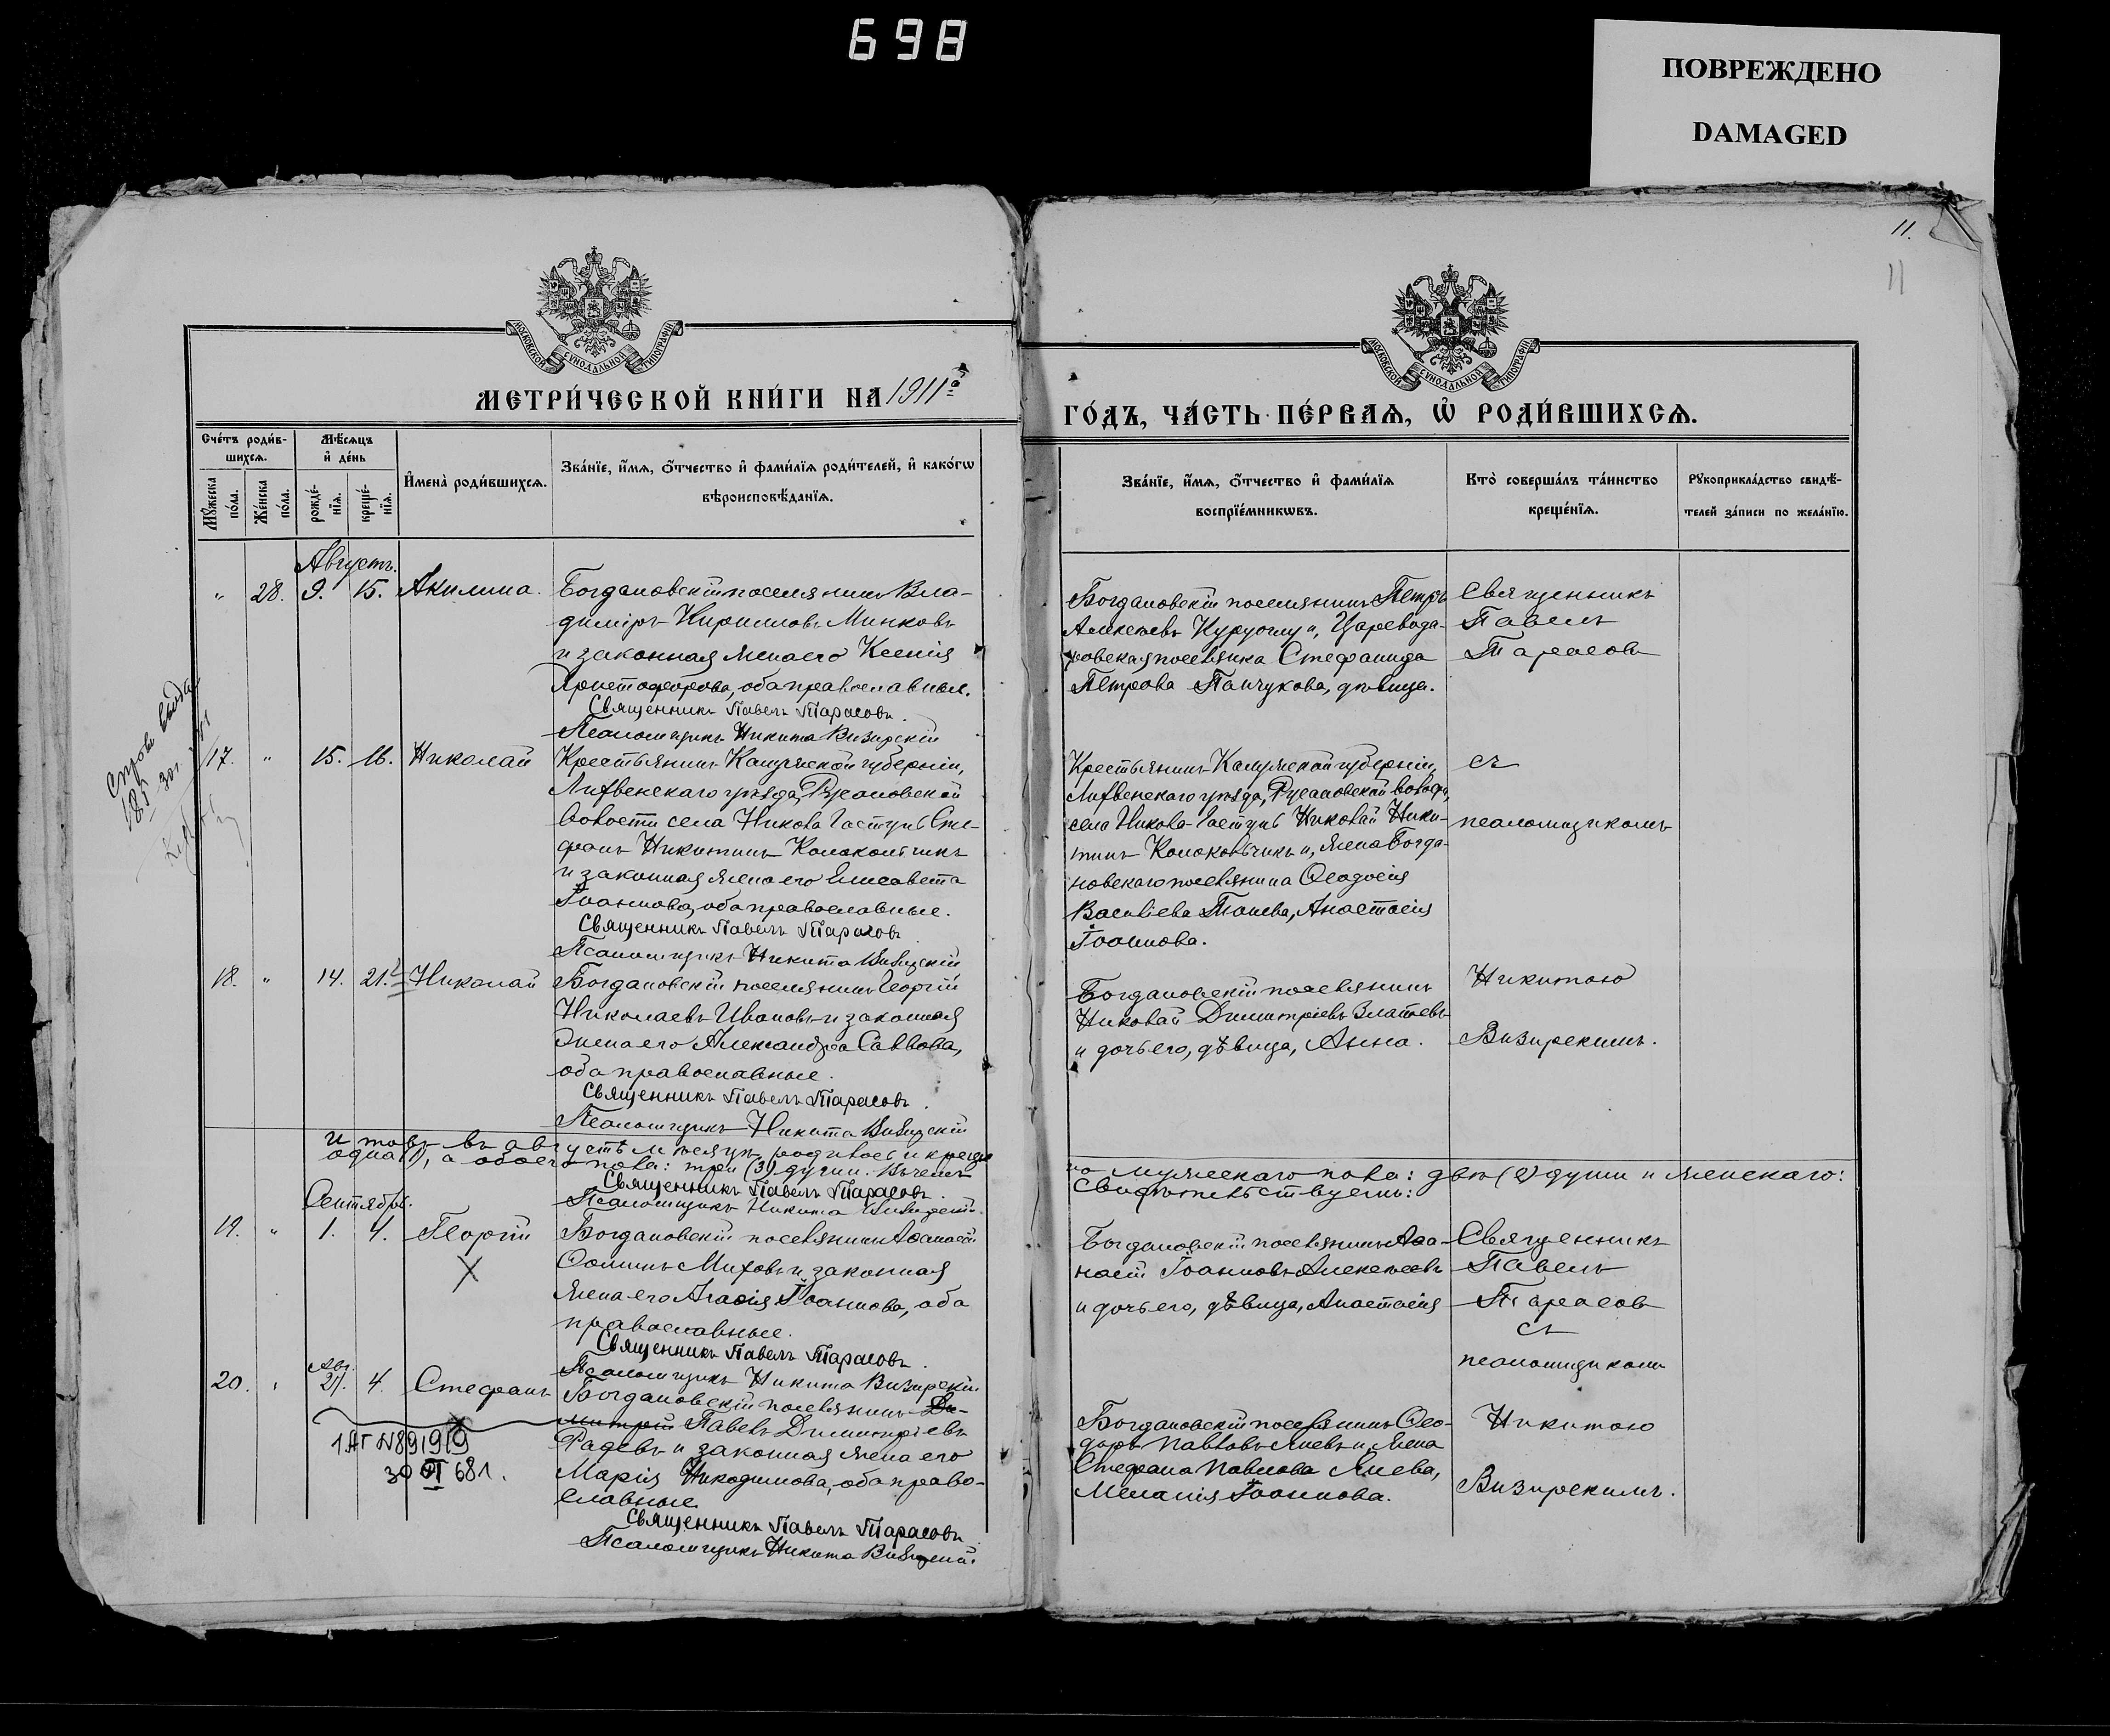 698
ПОВРЕЖДЕНО
DAMAGED
11.
11
МОСКОВСКОЙ СѴНОДАЛЬНОЙ ТИПОГРАФІИ
МОСКОВСКОЙ СѴНОДАЛЬНОЙ ТИПОГРАФІИ
МЕТРИ́ЧЕСКОЙ КНИ́ГИ НА 1911й
ГО́ДЪ, ЧА́СТЬ ПЕ́РВАЯ, Ѿ РОДИ́ВШИХСЯ.
Сче́тъ роди́в-
шихся.
Мꙋ́жеска
по́ла.
Же́нска
по́ла.
Мѣ́сяцъ
и҆ де́нь
рожде́-
нїя.
креще́-
нїя.
И҆мена̀ роди́вшихся.
Зва́нїе, и҆́мя, ѻ҆́тчество и҆ фами́лїя роди́телей, и҆ како́гѡ
вѣроисповѣ́данїя.
Зва́нїе, и҆́мя, ѻ҆́тчество и҆ фами́лїя
воспрїе́мникѡвъ.
Кто̀ соверша́лъ та́инство
креще́нїя.
Рꙋкоприкла́дство свидѣ́-
телей за́писи по жела́нїю.
Августъ.
" 28. 9. 15. Акилина.
Богдановскій поселянинъ Вла-
диміръ Кирилловъ Минковъ
и законная жена его Ксенія
Христофорова, оба православные.
Священникъ Павелъ Тарасовъ.
Псаломщикъ Никита Визирскій
Богдановскій поселянинъ Петръ
Алексѣевъ Куруоглу и, Царевода-
ровская поселянка Стефанида
Петрова Панчукова, дѣвица.
Священникъ
Павелъ
Тарасовъ
17. " 15. 16. Николай
Крестьянинъ Калужской губерніи,
Лихвенскаго уѣзда, Русановской
волости села Николо Гастунь Сте-
фанъ Никитинъ Колокольчикъ
и законная жена его Елисавета
Іоаннова, оба православные.
Священникъ Павелъ Тарасовъ
Псаломщикъ Никита Визирскій
Крестьянинъ Калужской губерніи,
Лихвенскаго уѣзда, Русановской волости,
села Николо-Гастунь Николай Ники-
тинъ Колокольчикъ и, жена Богда-
новскаго поселянина Ѳеодосія
Васильева Танева, Анастасія
Іоаннова.
съ
псаломщикомъ
18. " 14. 21. Николай
Богдановскій поселянинъ Георгій
Николаевъ Ивановъ и законная
жена его Александра Саввова,
оба православные.
Священникъ Павелъ Тарасовъ.
Псаломщикъ Никита Визирскій
Богдановскій поселянинъ
Николай Димитріевъ Златевъ
и дочь его, дѣвица, Анна.
Никитою
Визирскимъ.
Итого въ августѣ мѣсяцѣ родилось и креще
но мужескаго пола: двѣ (2) души и женскаго:
одна (1), а обоего пола: три (3) души. Въ чемъ
свидѣтельствуемъ:
Священникъ Павелъ Тарасовъ.
Псаломщикъ Никита Визирскій.
Сентябрь.
19. " 1. 4. Георгій
Богдановскій поселянинъ Аѳанасій
Ѳоминъ Миховъ и законная
жена его Агаѳія Іоаннова, оба
православные.
Священникъ Павелъ Тарасовъ.
Псаломщикъ Никита Визирскій
Богдановскій поселянинъ Аѳа-
насій Іоанновъ Алексѣевъ
и дочь его, дѣвица, Анастасія
Священникъ
Павелъ
Тарасовъ
съ
псаломщикомъ
Авг.
20. " 21. 4. Стефанъ
Богдановскій поселянинъ Ди-
митрій Павелъ Димитріевъ
Радевъ и законная жена его
Марія Никодимова, оба право-
славные.
Священникъ Павелъ Тарасовъ.
Псаломщикъ Никита Визирскій.
Богдановскій поселянинъ Ѳео-
доръ Павловъ Яневъ и, жена
Стефана Павлова Янева,
Меланія Іоаннова.
Никитою
Визирскимъ.
1АГ N891919
30 VI 681.